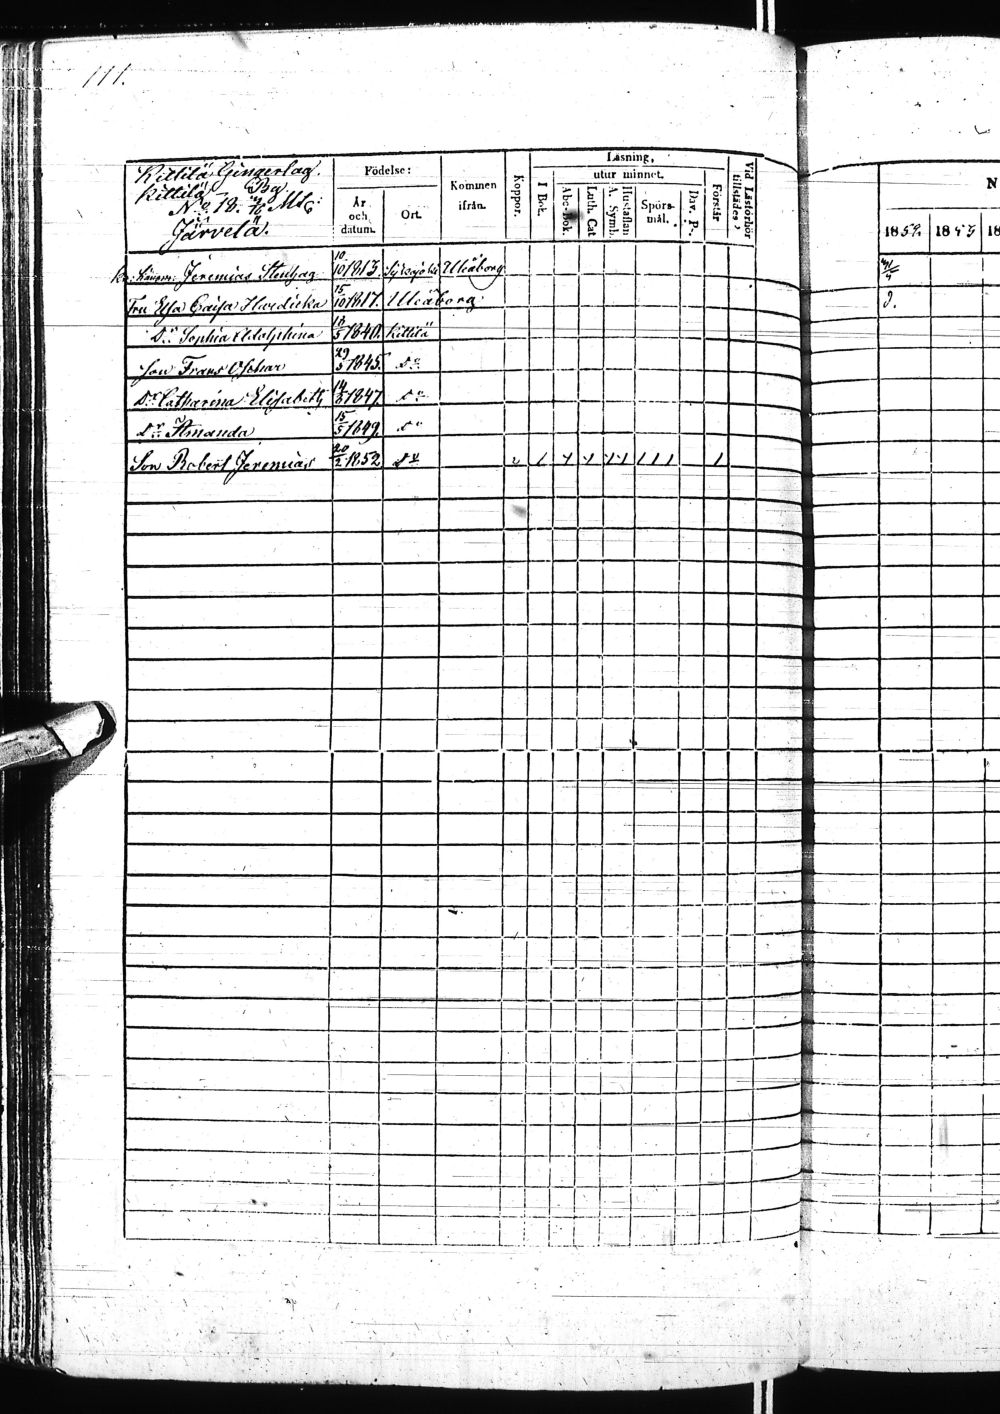 111.
Kittilä Gingerlag.
Kittilä By
N:o 18. Mtl:
Järvelä.
Födelse:
År och datum.
Ort.
Kommen ifrån.
Koppor.
Läsning,
I Bok.
utur minnet.
Abc-Bok.
Luth. Cat
Hustaflan A. Symb.
Spörs-mål.
Dav. P.
Förstår
Vid Läsförhör tillstädes
N
1852. 1853 18
Jeremias Stenhag 10/10 1813. Uleåborg
Fru Elsa Caisa 15/10 1817. Uleåborg
D:r Sophia Adolphina 1840. Kittilä
Son Frans Oskar 29/5 1845. D:o
D:r Catharina Elisabeth 1847. D:o
D:r Amanda 15/5 1849. D:o
Son Robert Jeremias 20/2 1852 D:o 2 1 1 1 1 1 1 1 1 1